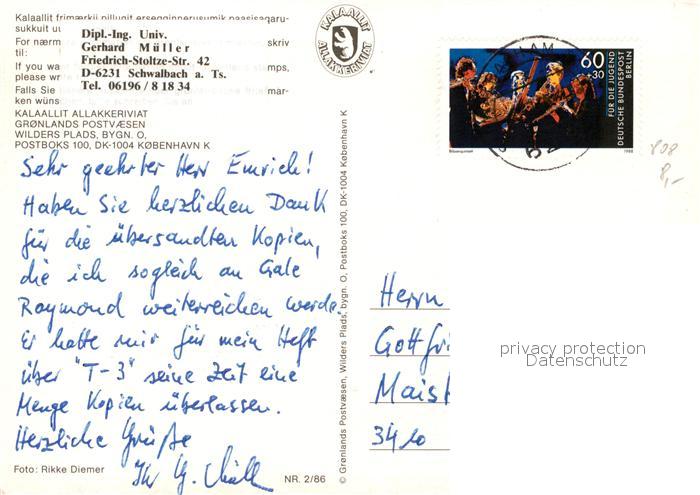 Kalaallit frimærkii pillugit ersegginnerusumik paasisaqaru-
sukkuit
For nærm skriv
til:
If you wa stamps,
please write
Falls Sie mar-
ken wüns
Dipl.-Ing. Univ.
Gerhard Müller
Friedrich-Stoltze-Str. 42
D-6231 Schwalbach a. Ts.
Tel. 06196 / 8 18 34
KALAALLIT ALLAKKERIVIAT
GRØNLANDS POSTVÆSEN
WILDERS PLADS, BYGN. O,
POSTBOKS 100, DK-1004 KØBENHAVN K
Sehr geehrter Herr Emrich!
Haben Sie herzlichen Dank
für die übersandten Kopien,
die ich sogleich an Gale
Raymond weiterreichen werde.
Er hatte mir für mein Heft
über "T-3" seine Zeit eine
Menge Kopien überlassen.
Herzliche Grüße
Ihr G. Müller
Foto: Rikke Diemer
NR. 2/86
© Grønlands Postvæsen, Wilders Plads, bygn. O, Postboks 100, DK-1004 København K
KALAALLIT
ALLAKKERIVIAT
60
+30
FÜR DIE JUGEND
DEUTSCHE BUNDESPOST
BERLIN
1988
808
8,-
Herrn
Gottfri
Maist
3410
privacy protection
Datenschutz